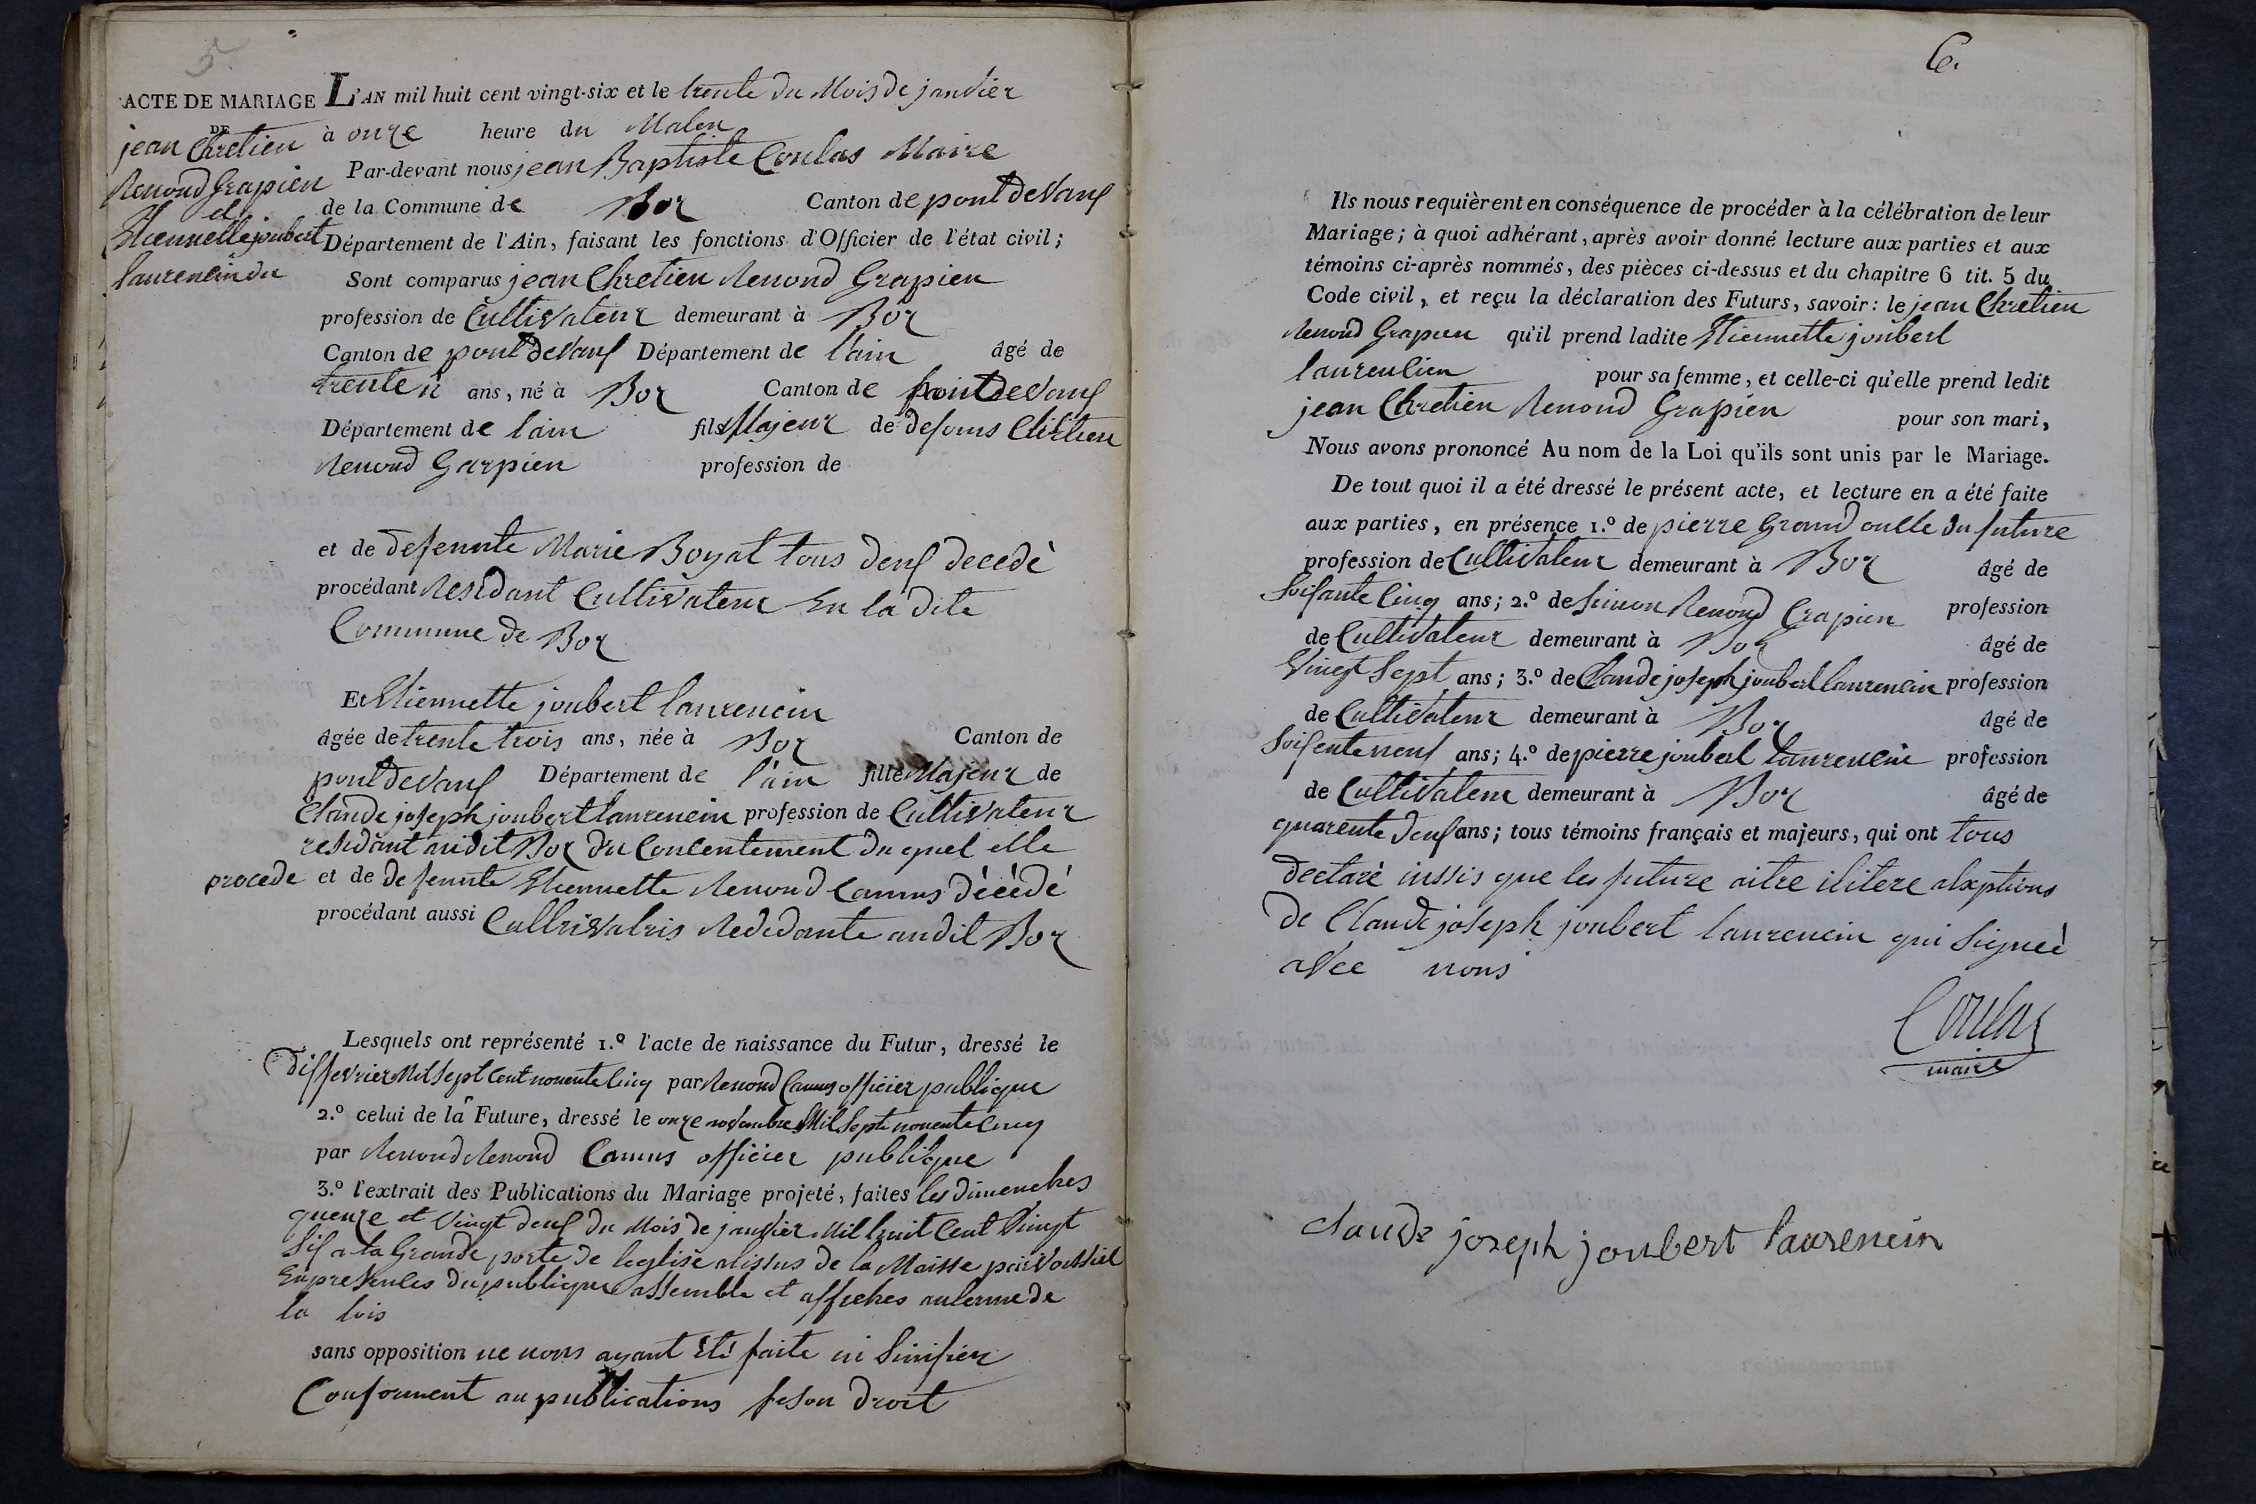 5
ACTE DE MARIAGE
DE
jean Chretien
Renoud Grapien
et
Etiennette joubert
laurencin du
L'AN mil huit cent vingt-six et le trente du Mois de janvier
à onze heure du Maten
Par-devant nous jean Baptiste Coulas Maire
de la Commune de Boz Canton de pont de Vauf
Département de l'Ain, faisant les fonctions d'Officier de l'état civil;
Sont comparus jean Chretien Renoud Grapien
profession de Cultivateur demeurant à Boz
Canton de pont de Vauf Département de l'ain âgé de
trente ans, né à Boz Canton de pont de Vauf
Département de l'ain fils Majeur de defouns Chretien
Renoud Garpien profession de
et de defeunte Marie Boyat tous deuf decedè
procédant Residant Cultivateur En la dite
Commune de Boz
Et Etiennette joubert laurencin
âgée de trente trois ans, née à Boz Canton de
pont de Vauf Département de l'ain fille Majeur de
Claude joseph joubert laurencin profession de Cultivateur
residant audit Boz du Concentement du quel elle
procede et de defeunte Etiennette Renoud Camus dècèdé
procédant aussi Cultrivatris Rededante audit Boz
Lesquels ont représenté 1.º l'acte de naissance du Futur, dressé le
dif fevrier Mil Sept Cent nonente Cinq par Renoud Camus officier publique
2.º celui de la Future, dressé le onze novembre Mil Septe nonente Cinq
par Renoud Renoud Camus officier publique
3.º l'extrait des Publications du Mariage projeté, faites les dimenches
quenze et Vingt deuf du Mois de janvier Mil huit Cent Vingt
Sif a la Grande porte de leglise alissus de la Maisse parvoissiel
Enpresences du publique assemble et affiches auterme de
la lois
sans opposition ne nous ayant Eté faite ni Sinifier
Conforment au publications feson droit
6.
Ils nous requièrent en conséquence de procéder à la célébration de leur
Mariage; à quoi adhérant, après avoir donné lecture aux parties et aux
témoins ci-après nommés, des pièces ci-dessus et du chapitre 6 tit. 5 du
Code civil, et reçu la déclaration des Futurs, savoir: le jean Chretien
Renoud Grapien qu'il prend ladite Etiennette joubert
laurencien pour sa femme, et celle-ci qu'elle prend ledit
jean Chretien Renoud Grapien pour son mari,
Nous avons prononcé Au nom de la Loi qu'ils sont unis par le Mariage.
De tout quoi il a été dressé le présent acte, et lecture en a été faite
aux parties, en présence 1.º de pierre Grand oncle du future
profession de Cultivateur demeurant à Boz âgé de
Soisante Cinq ans; 2.º de Simon Renoud Grapien profession
de Cultivateur demeurant à Boz âgé de
Vingt Sept ans; 3.º de Claude joseph joubert laurencin profession
de Cultivateur demeurant à Boz âgé de
Soisente neuf ans; 4.º de pierre joubert laurencin profession
de Cultivateur demeurant à Boz âgé de
quarente deuf ans; tous témoins français et majeurs, qui ont tous
declarè inssis que les future aitre ilitere alxptions
de Claude joseph joubert laurencin qui Signeè
avec nous
Coulas
maire
claude joseph joubert laurencin